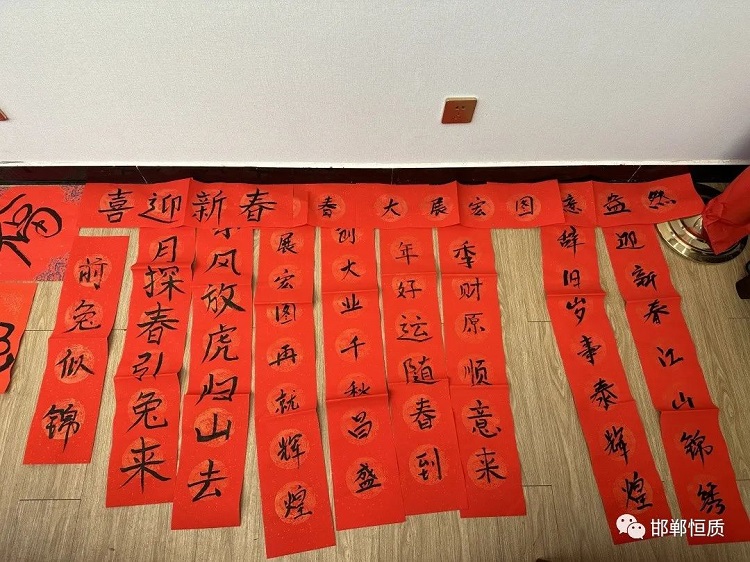 喜迎新春 春大展宏图意盎然
福
前兔似锦
月探春引兔来
风放虎归山去
展宏图再就辉煌
创大业千秋昌盛
年好运随春到
季财原顺意来
辞旧岁事泰辉煌
迎新春江山锦绣
邯郸恒质